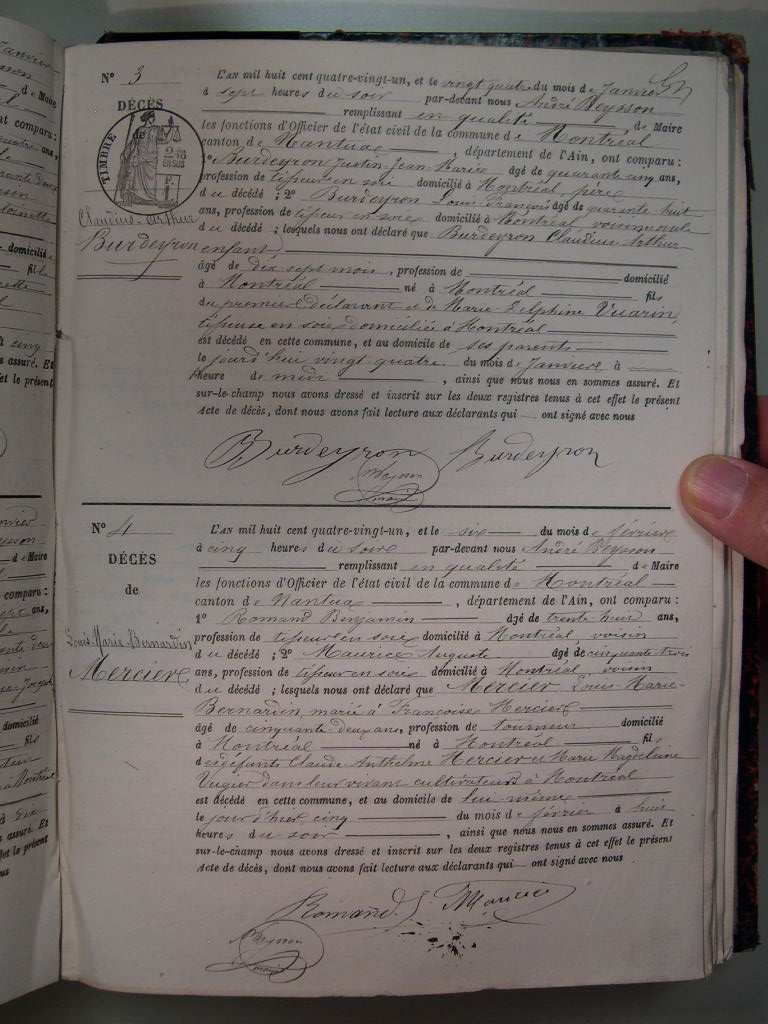 N° 3
DÉCÈS
de
TIMBRE
Claudius-Arthur
Burdeyron
L'AN mil huit cent quatre-vingt-un, et le vingt quatre du mois de Janvier
à sept heures du soir par-devant nous André Peysson
remplissant en qualité de Maire
les fonctions d'Officier de l'état civil de la commune de Montréal
canton de Nantua, département de l'Ain, ont comparu :
1° Burdeyron Justin-Jean-Marie âgé de quarante cinq ans,
profession de tisseur en soie domicilié à Montréal, père
du décédé ; 2° Burdeyron Louis François âgé de quarante huit
ans, profession de tisseur en soie domicilié à Montréal, voisin
du décédé ; lesquels nous ont déclaré que Burdeyron Claudius Arthur
enfant
âgé de dix sept mois, profession de domicilié
à Montréal né à Montréal fils
du premier déclarant et de Marie Delphine Vuarin,
tisseuse en soie domiciliée à Montréal
est décédé en cette commune, et au domicile de ses parents
le jourd'hui vingt quatre du mois de Janvier à
heure de midi, ainsi que nous nous en sommes assuré. Et
sur-le-champ nous avons dressé et inscrit sur les deux registres tenus à cet effet le présent
Acte de décès, dont nous avons fait lecture aux déclarants qui ont signé avec nous
Burdeyron Burdeyron
Peysson
maire
N° 4
DÉCÈS
de
Louis-Marie-Bernardin
Mercier
L'AN mil huit cent quatre-vingt-un, et le six du mois de février
à cinq heures du soir par-devant nous André Peysson
remplissant en qualité de Maire
les fonctions d'Officier de l'état civil de la commune de Montréal
canton de Nantua, département de l'Ain, ont comparu :
1° Romand Benjamin âgé de trente huit ans,
profession de tisseur en soie domicilié à Montréal, voisin
du décédé ; 2° Maurice Auguste âgé de cinquante trois
ans, profession de tisseur en soie domicilié à Montréal, voisin
du décédé ; lesquels nous ont déclaré que Mercier Louis Marie-
Bernardin, marié à Françoise Mercier
âgé de cinquante deux ans, profession de tourneur domicilié
à Montréal né à Montréal fils
de défunts Claude Anthelme Mercier et Marie Magdeleine
dans leur vivant cultivateurs à Montréal
est décédé en cette commune, et au domicile de lui même
le jour d'hier cinq du mois de février à huit
heures du soir, ainsi que nous nous en sommes assuré. Et
sur-le-champ nous avons dressé et inscrit sur les deux registres tenus à cet effet le présent
Acte de décès, dont nous avons fait lecture aux déclarants qui ont signé avec nous
Romand. Maurice
Peysson
maire